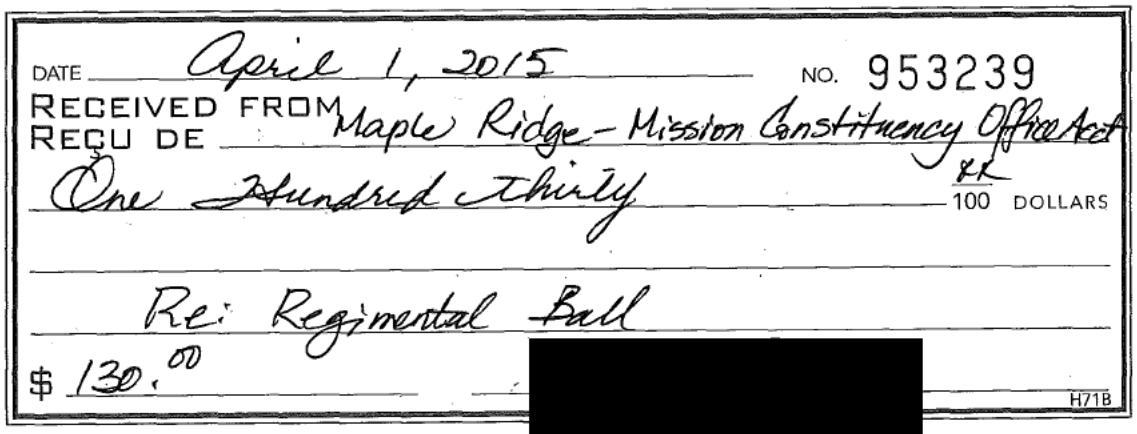 DATE April 1, 2015 NO. 953239
RECEIVED FROM
REÇU DE Maple Ridge - Mission Constituency Office Acct
One Hundred thirty xx/100 DOLLARS
Re: Regimental Ball
$ 130.00
H71B